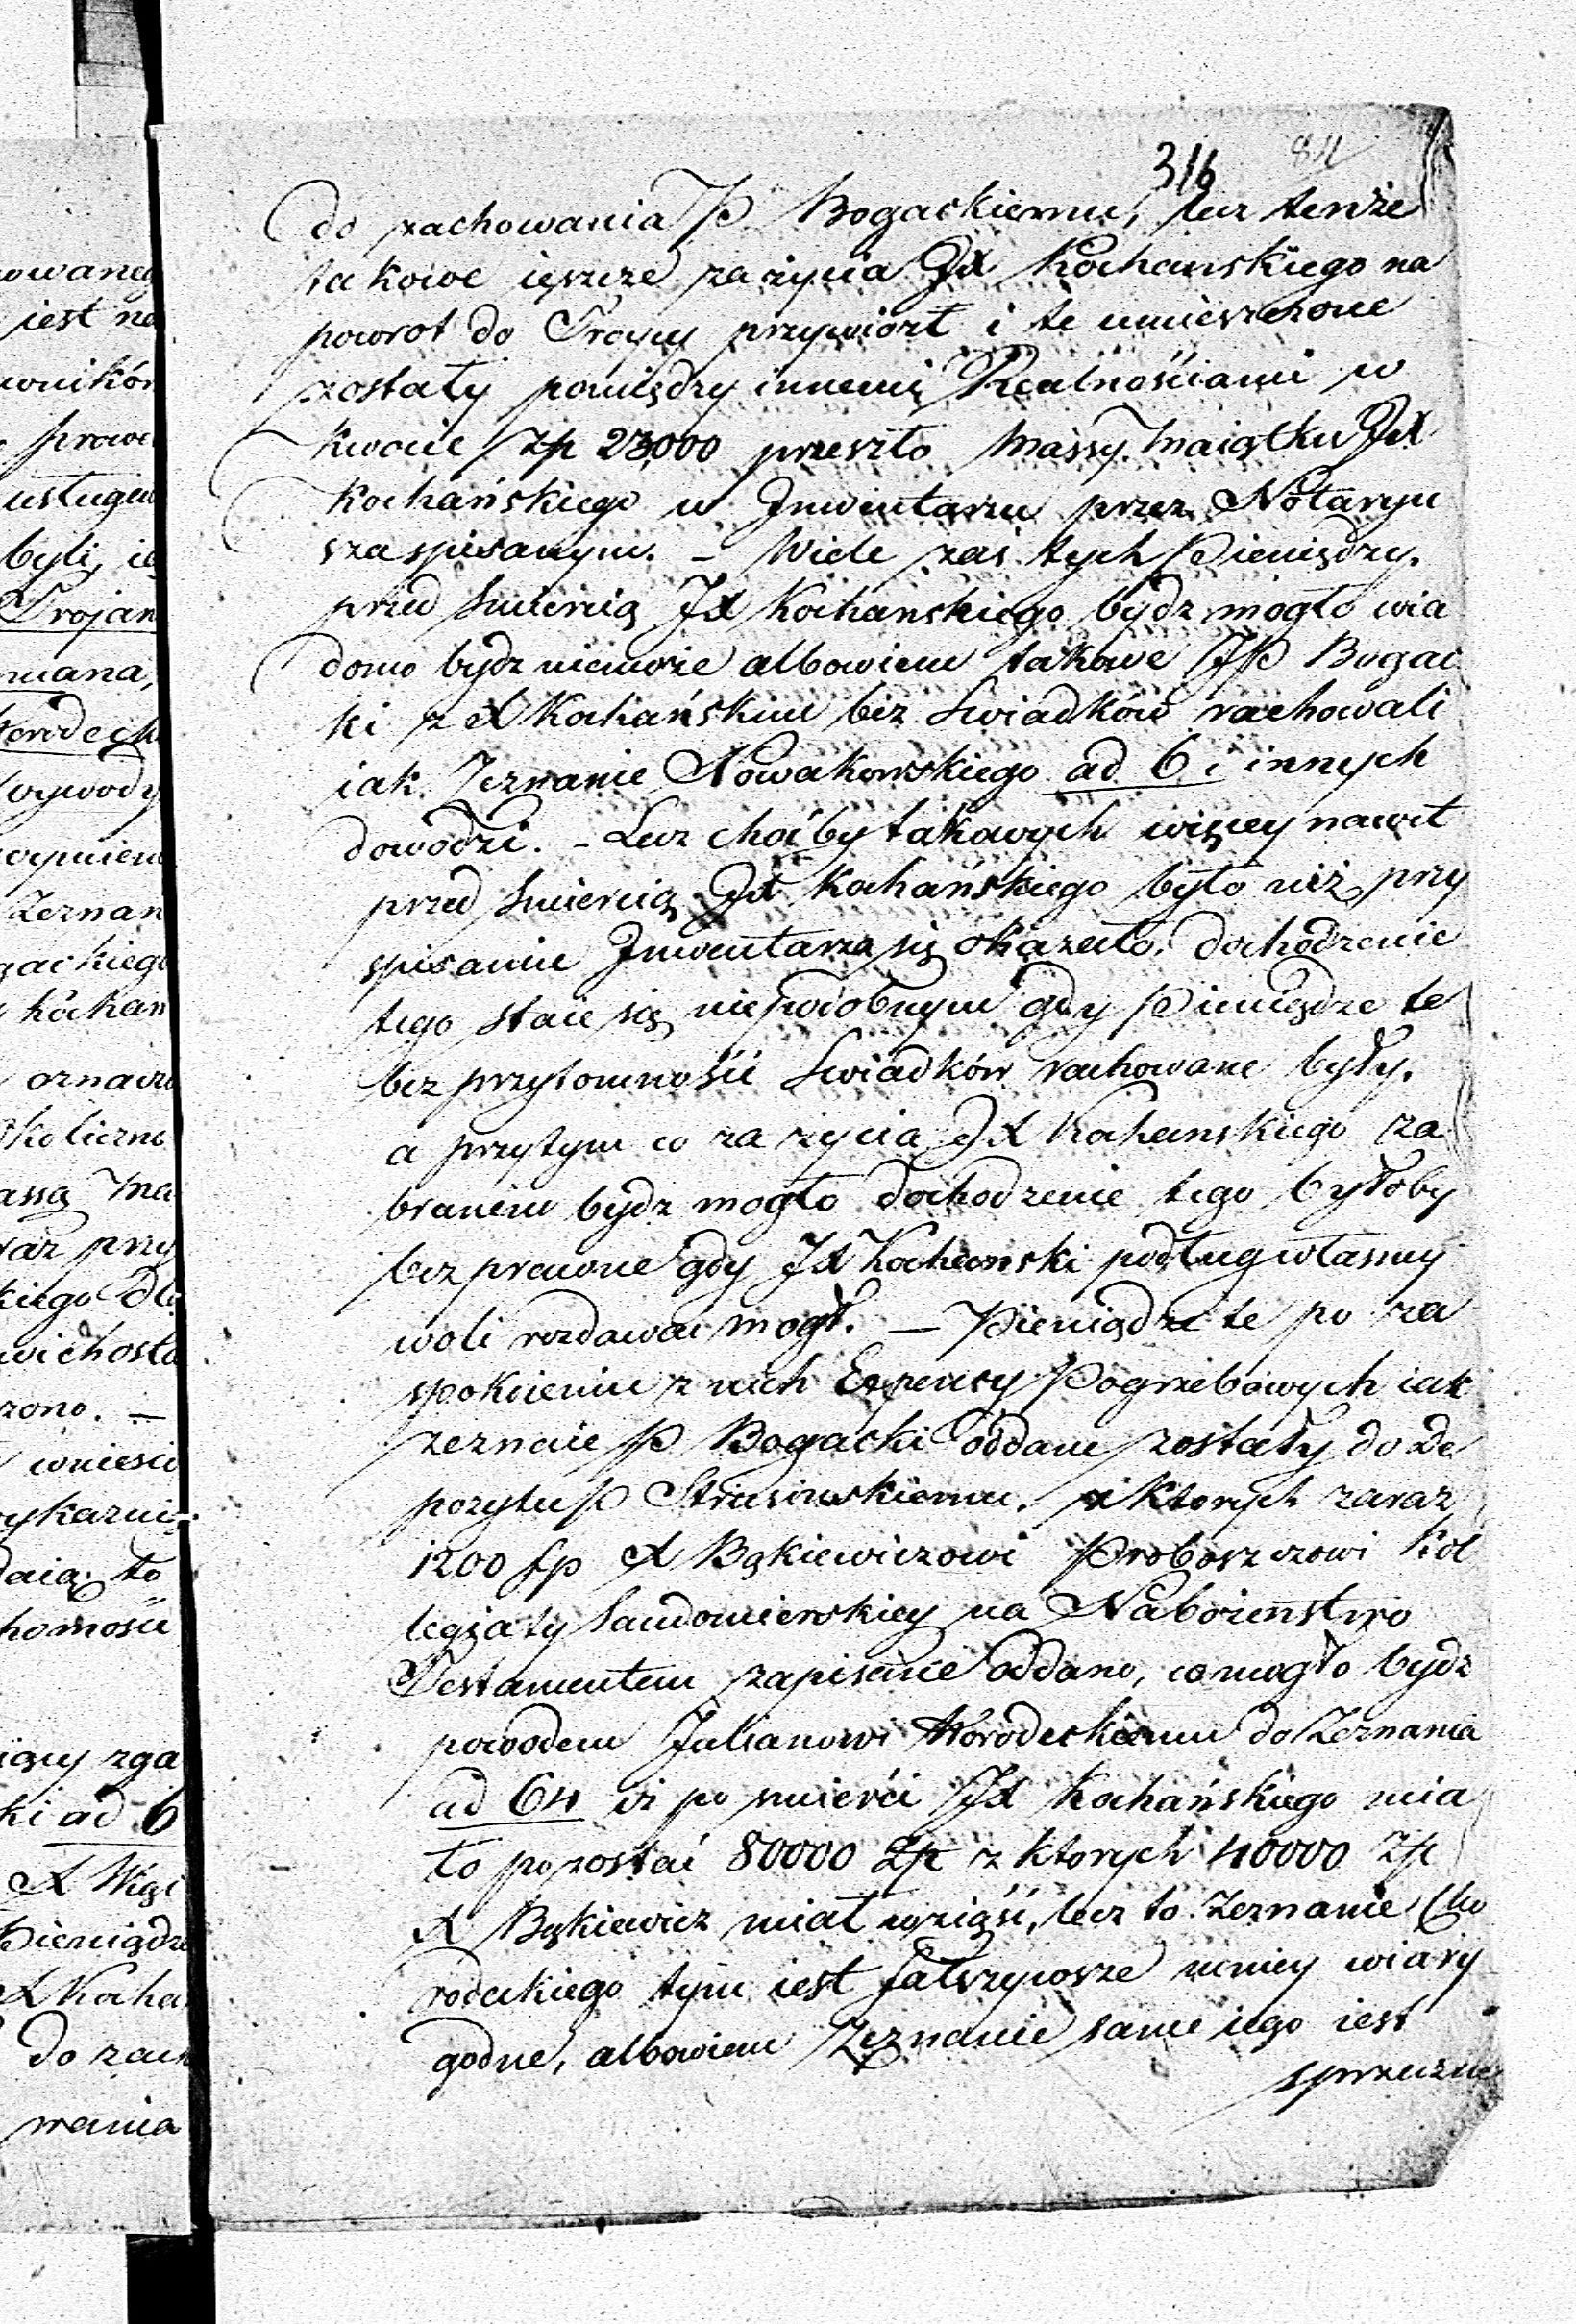 316 84
do zachowania JP Bogackiemu, lecz tenże
takowe ieszcze za życia JX Kochanskiego na
powrot do Troycy przywiozł i te umieszczone
zostały pomiędzy innemi Realnościami w
kwocie Zp 23,000 przeszło Massy Maiątku JX
Kochańskiego w Jnwentarzu przez Notaryu
sza spisanym. – Wiele zaś tych Pieniędzy
przed Smiercią JX Kochanskiego bydz mogło wia
domo bydz niemoże albowiem takowe JP Bogac
ki z X Kochańskim bez Swiadków rachowali
iak Zeznanie Nowakowskiego ad 6 i innych
dowodzi. – Lecz choćby takowych więcey nawet
przed Smiercią JX Kochańskiego było niż przy
spisaniu Jnwentarza się okazało, dochodzenie
tego staie się niepodobnym gdy Pieniądze te
bez przytomności Swiadków rachowane były,
a przytym co za życia JX Kochanskiego za
branem bydz mogło dochodzenie tego byłoby
bezprawne gdy JX Kochanski podług własney
woli rozdawać mógł. — Pieniądze te po za
spokoieniu z nich Expensy Pogrzebowych iak
zeznaie JP Bogacki oddane zostały do De
pozytu P Strusiowskiemu, z ktorych zaraz
1200 fp X Bąkiewiczowi Proboszczowi Kol
legiaty Sandomierskiey na Nabożeństwo
Testamentem zapisane oddano, co mogło bydz
powodem Julianowi Horodeckiemu do Zeznania
ad 64 iż po smierći JX Kochańskiego mia
ło pozostać 80000 Zp z ktorych 40000 Zp
X Bąkiewicz miał wziąść, lecz to Zeznanie Ho
rodeckiego tym iest fałszywsze mniey wiary
godne, albowiem Zeznanie same iego iest
sprzeczne